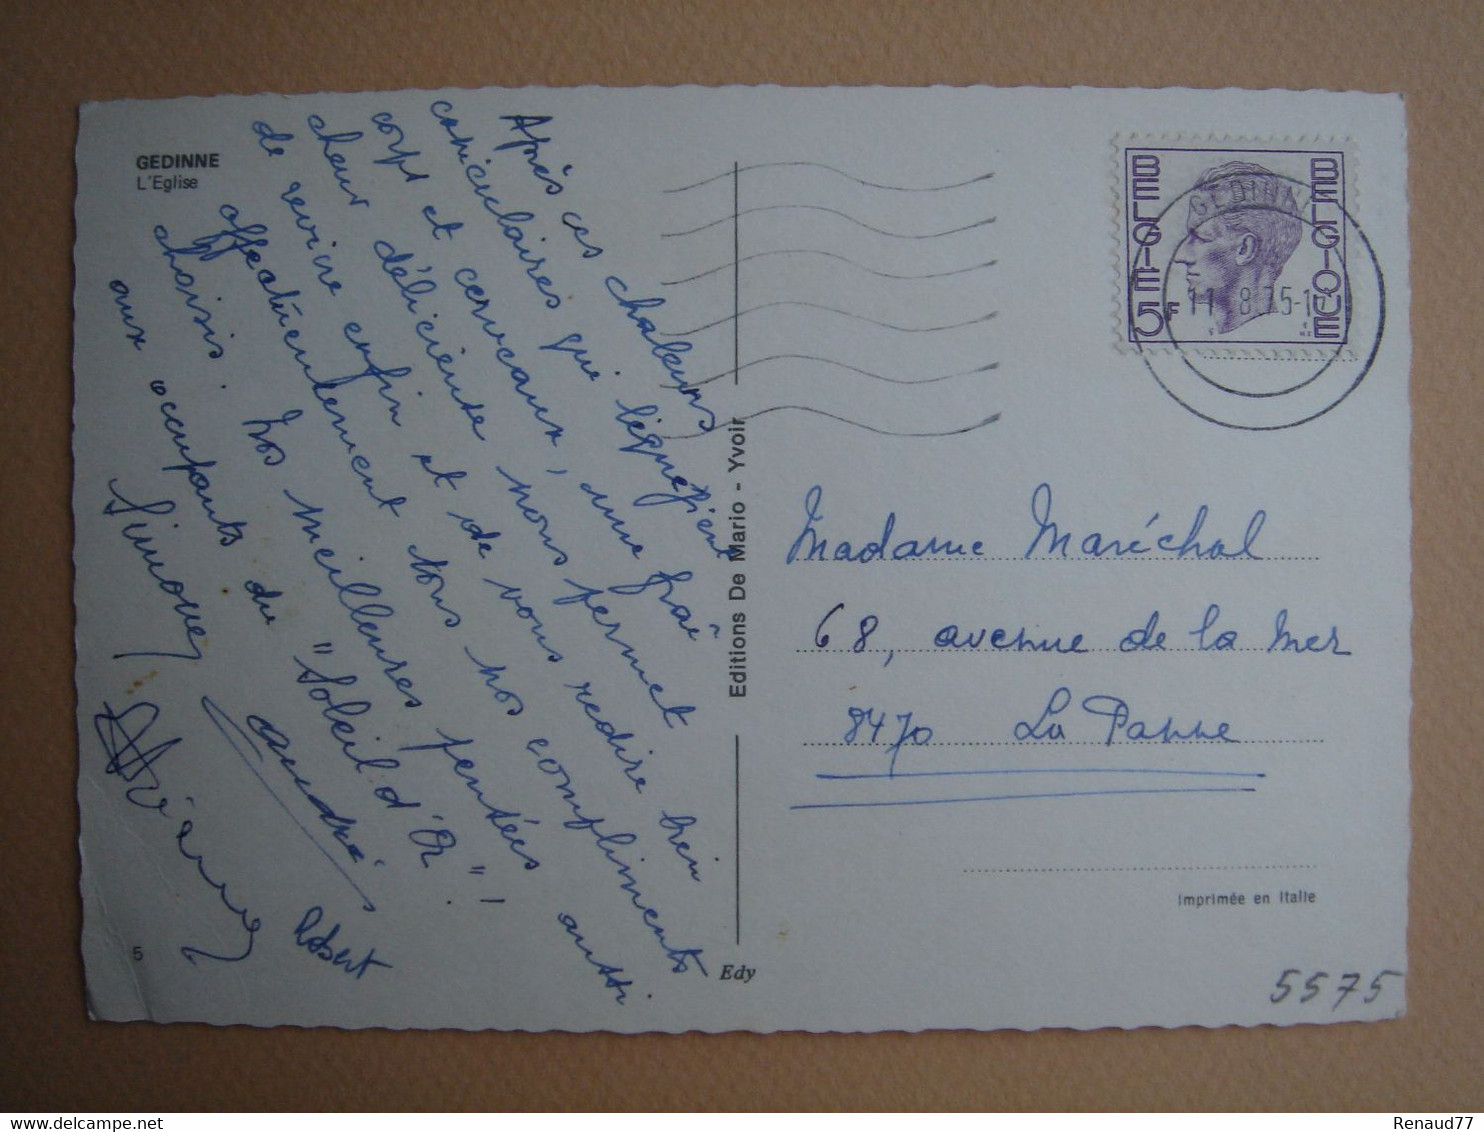 GEDINNE
L'Eglise
Après ces chaleurs
caniculaires qui liquéfient
corps et cerveaux, une fraî
cheur délicieuse nous permet
de revivre enfin et de vous redire bien
affectueusement tous nos compliments
choisis. Nos meilleures pensées aussi
aux occupants du "Soleil d'Or"!
Simone
André
Robert
5
Editions De Mario - Yvoir
Edy
BELGIE 5F
BELGIQUE
GEDINNE
11 8.75-1
Madame Maréchal
68, avenue de la Mer
8470 La Panne
Imprimée en Italie
5575
Renaud77